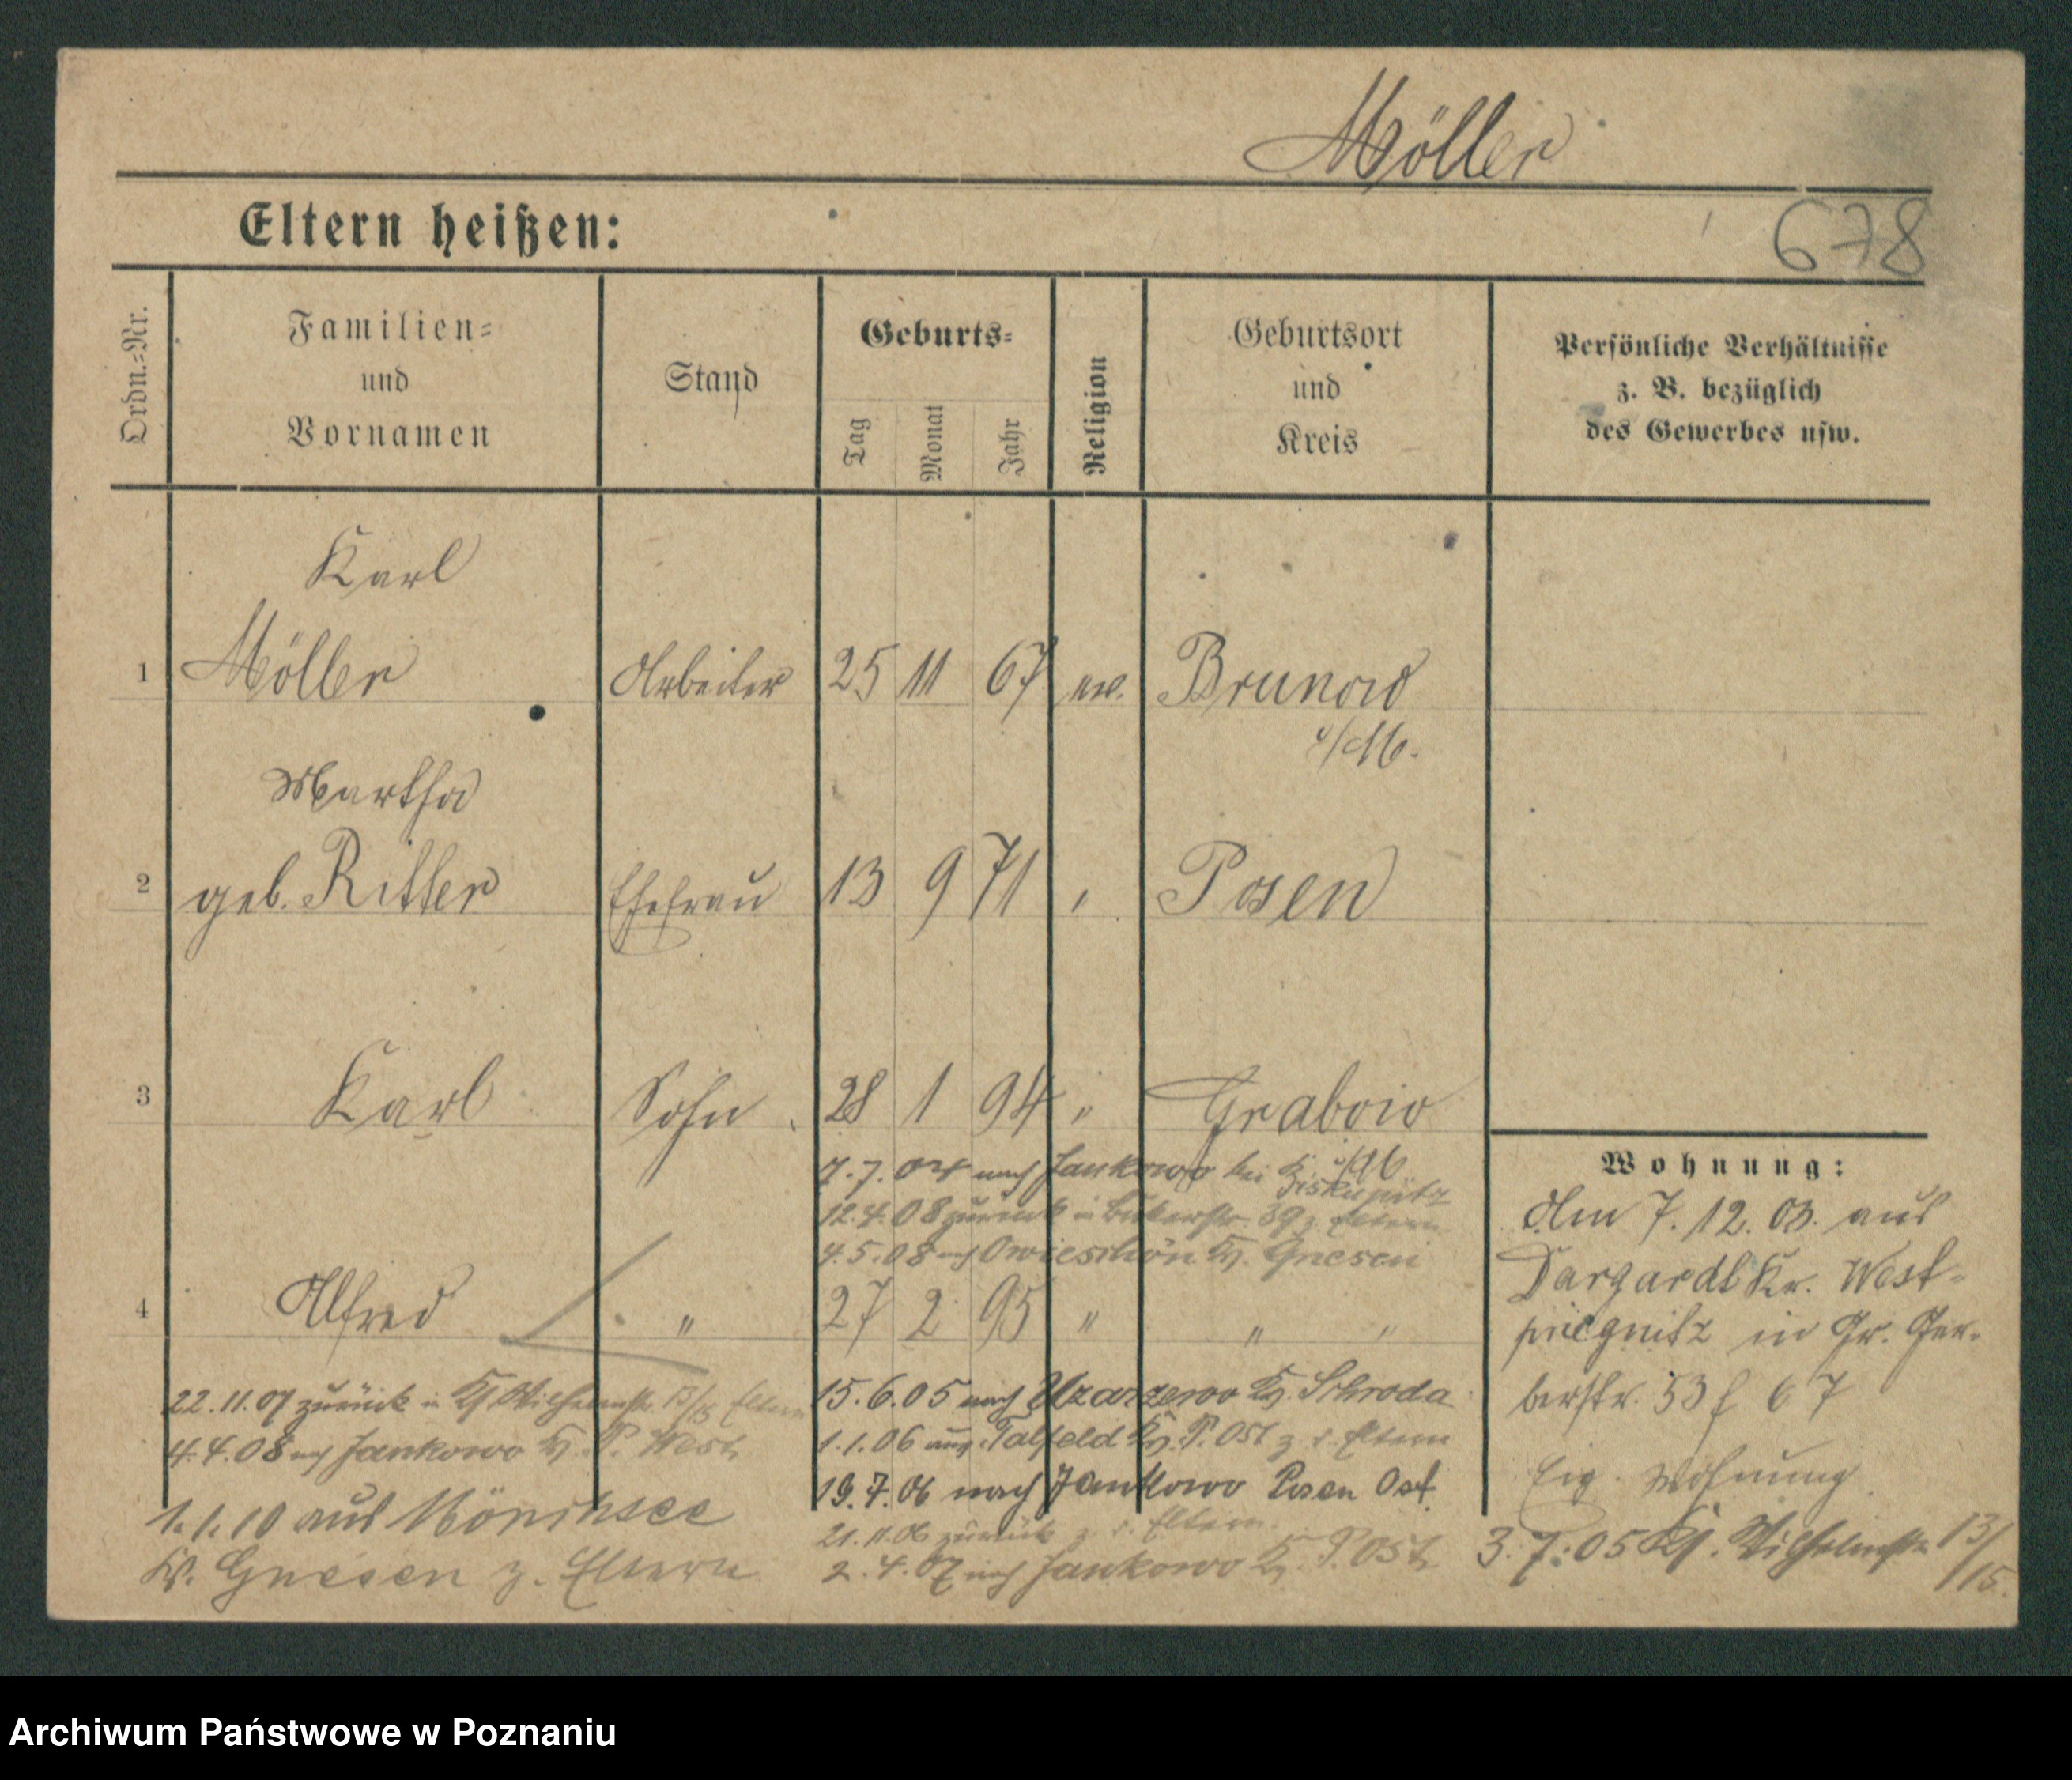 Möller
Eltern heißen:
678
Ordn.=Nr.
Familien=
und
Vornamen
Stand
Geburts=
Tag
Monat
Jahr
Religion
Geburtsort
und
Kreis
Persönliche Verhältnisse
z. B. bezüglich
des Gewerbes usw.
Karl
1 Möller Arbeiter 25 11 67 ev. Brunow
i/M.
Martha
2 geb. Ritter Ehefrau 13 9 71 " Posen
3 Karl Sohn 28 1 94 " Grabow
i/M
7.7. nach Jankowo bei
12.4.08 zurück in 39 z. Eltern
4.5.08 nach Owieschön Kr. Gnesen
4 Alfred " 27 2 95 " " "
22.11.07 zurück in Kl. Wilhelmstr. 13/15 Eltern
4.4.08 nach Jankowo Kr. P. West
1.1.10 aus Mönchsee
Kr. Gnesen z. Eltern
15.6.05 nach Uzarzewo Kr. Schroda
1.1.06 aus Talfeld Kr. P. Ost z. d. Eltern
19.7.06 nach Jankowo Posen Ost
21.11.06 zurück z. d. Eltern
2.4.07 nach Jankowo Kr. P. Ost
Wohnung:
Am 7.12.03. aus
Dargardt Kr. West-
priegnitz in Gr. Ger-
berstr. 53 f 67
Eig. Wohnung
3.7.05 Kl. Wilhelmstr. 13/15